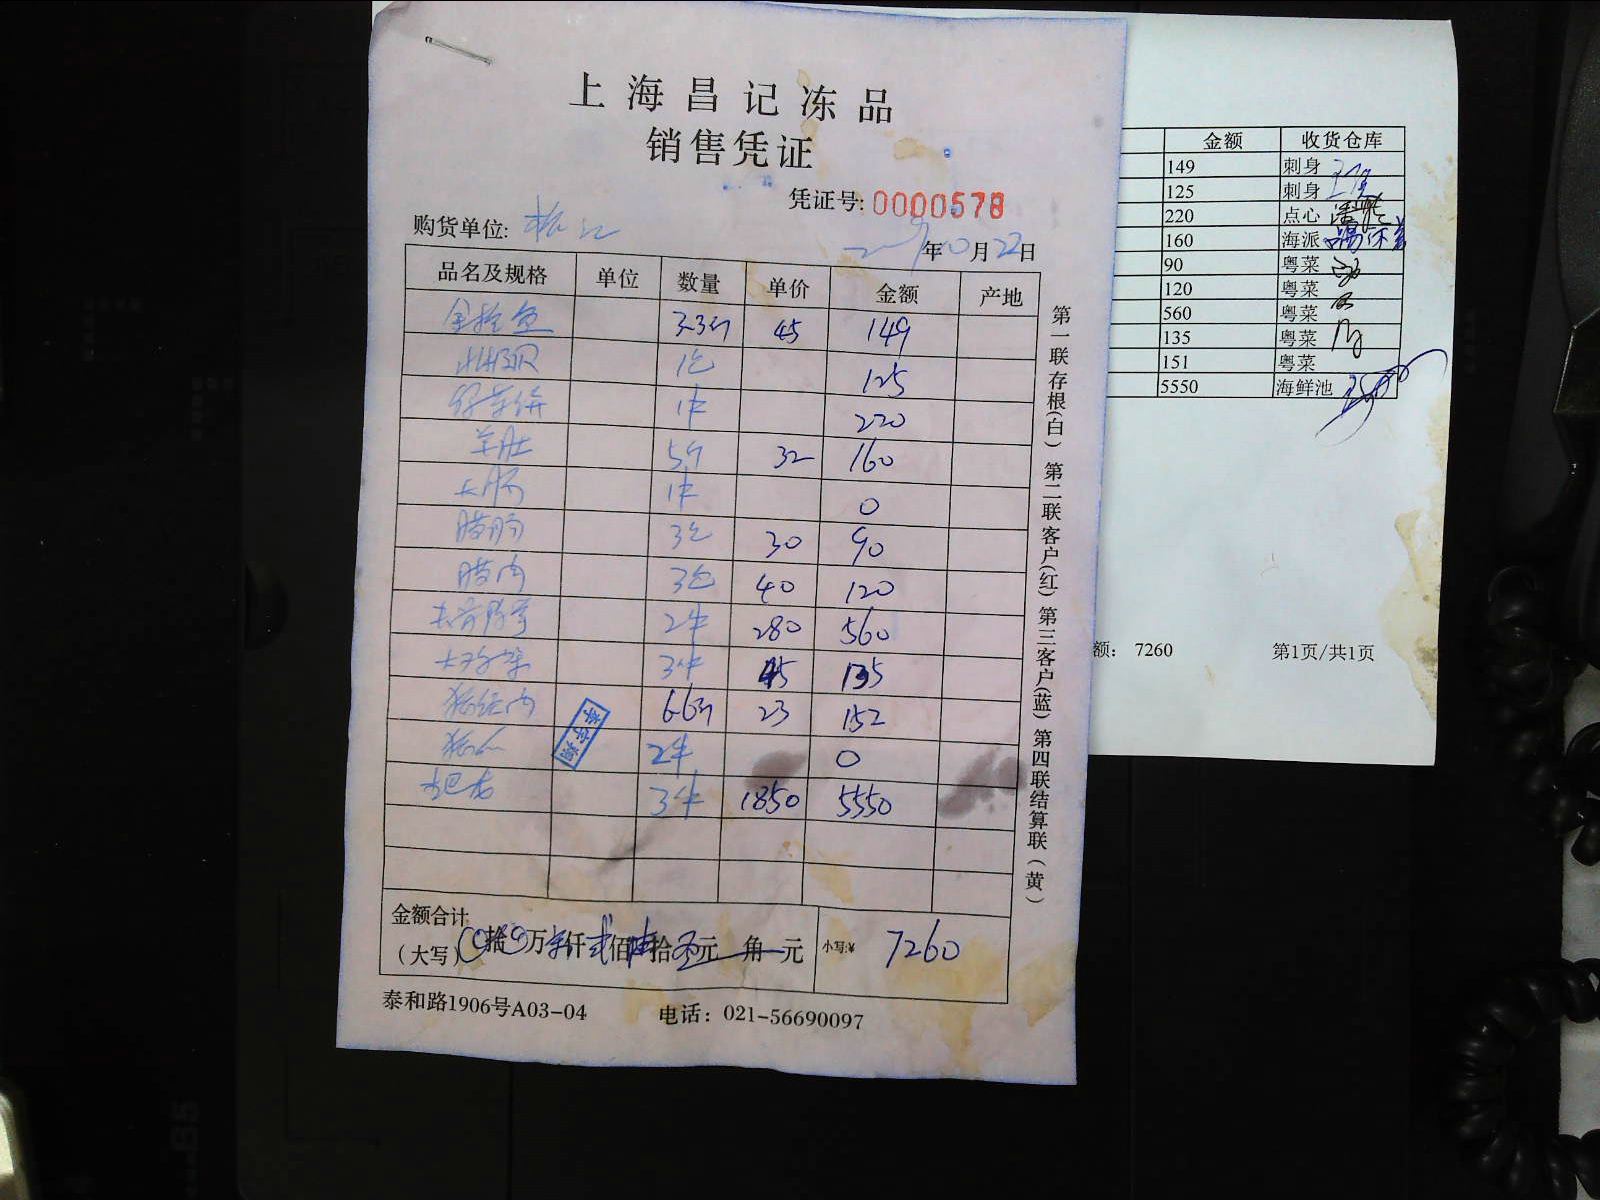 上海昌记冻品
销售凭证
凭证号: 0000578
购货单位:
年10月22日
品名及规格 单位 数量 单价 金额 产地
金枪鱼 3.3斤 45 149
1包 125
1件 220
羊肚 5斤 32 160
大肠 1件 0
腊肠 3包 30 90
腊肉 3包 40 120
2件 280 560
3件 45 135
6.6斤 23 152
2件 0
3件 1850 5550
李宇翔
金额合计
(大写) 拾 万 仟 贰 佰 陆 拾 元 角 元 小写:¥ 7260
泰和路1906号A03-04 电话：021-56690097
第一联存根(白) 第二联客户(红) 第三客户(蓝) 第四联结算联(黄)
金额 收货仓库
149 刺身
125 刺身
220 点心
160 海派
90 粤菜
120 粤菜
560 粤菜
135 粤菜
151 粤菜
5550 海鲜池
额： 7260 第1页/共1页